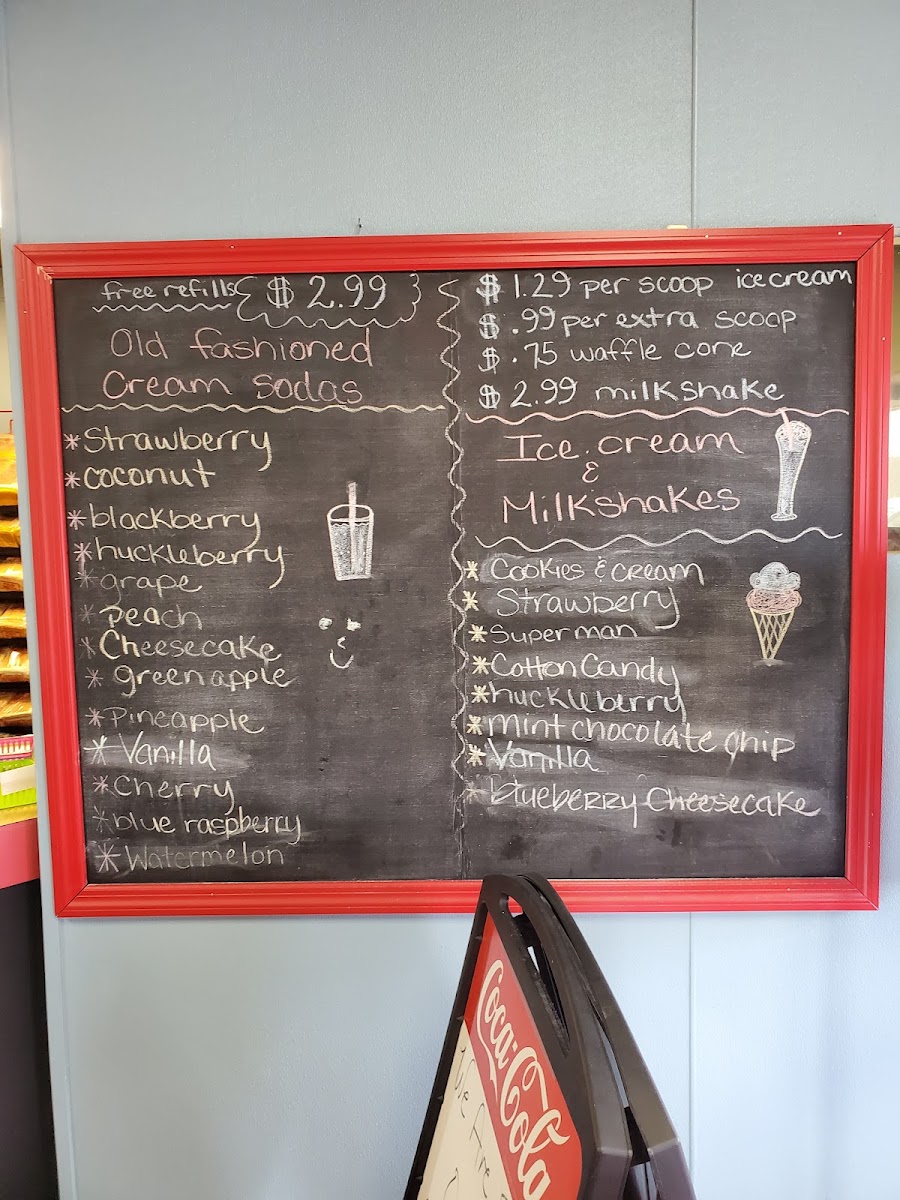 free refills $ 2.99
Old fashioned
Cream Sodas
*Strawberry
*coconut
*blackberry
*huckleberry
*grape
*Peach
*Cheesecake
*green apple
*Pineapple
*Vanilla
*Cherry
*blue raspberry
*Watermelon
$ 1.29 per scoop ice cream
$ .99 per extra scoop
$ .75 waffle cone
$ 2.99 milkshake
Ice cream
&
Milkshakes
*Cookies & cream
*Strawberry
*Superman
*Cotton Candy
*huckleberry
*Mint chocolate chip
*Vanilla
*blueberry Cheesecake
Coca-Cola